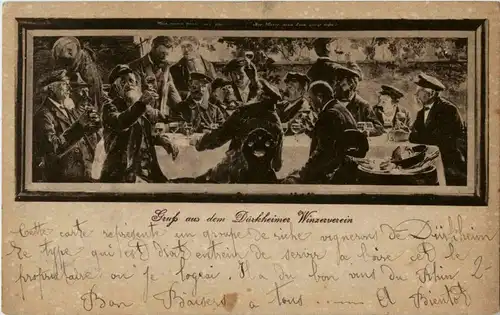 Gruß aus dem Dürkheimer Winzerverein
Cette carte représente un groupe de riche vignerons de Dürkheim
Le type qui est droit entrein de servir a boire cet le
propriétaire ou je logeai. Il a du bon vins du Rhin
Bon Baisers a tous ..... A Bientôt